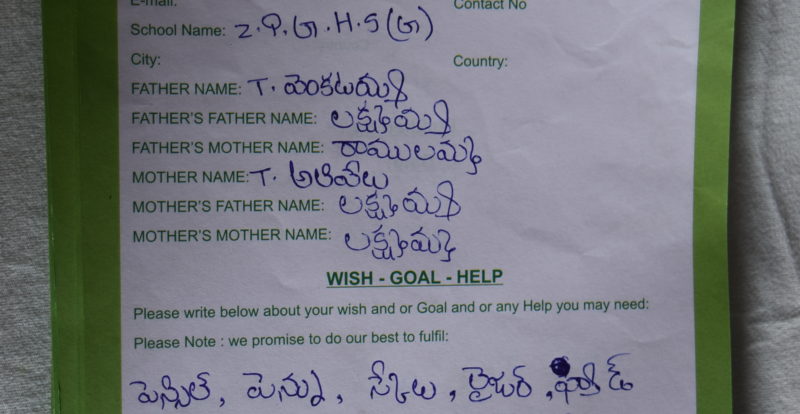 E-mail:
Contact No
School Name: Z.P.G.H.S (G)
City:
Country:
FATHER NAME: T. వెంకటయ్య
FATHER'S FATHER NAME: లక్ష్మయ్య
FATHER'S MOTHER NAME: రాములమ్మ
MOTHER NAME: T. అలివేలు
MOTHER'S FATHER NAME: లక్ష్మయ్య
MOTHER'S MOTHER NAME: లక్ష్మమ్మ
WISH - GOAL - HELP
Please write below about your wish and or Goal and or any Help you may need:
Please Note : we promise to do our best to fulfil:
పెన్సిల్, పెన్ను, స్కేలు,